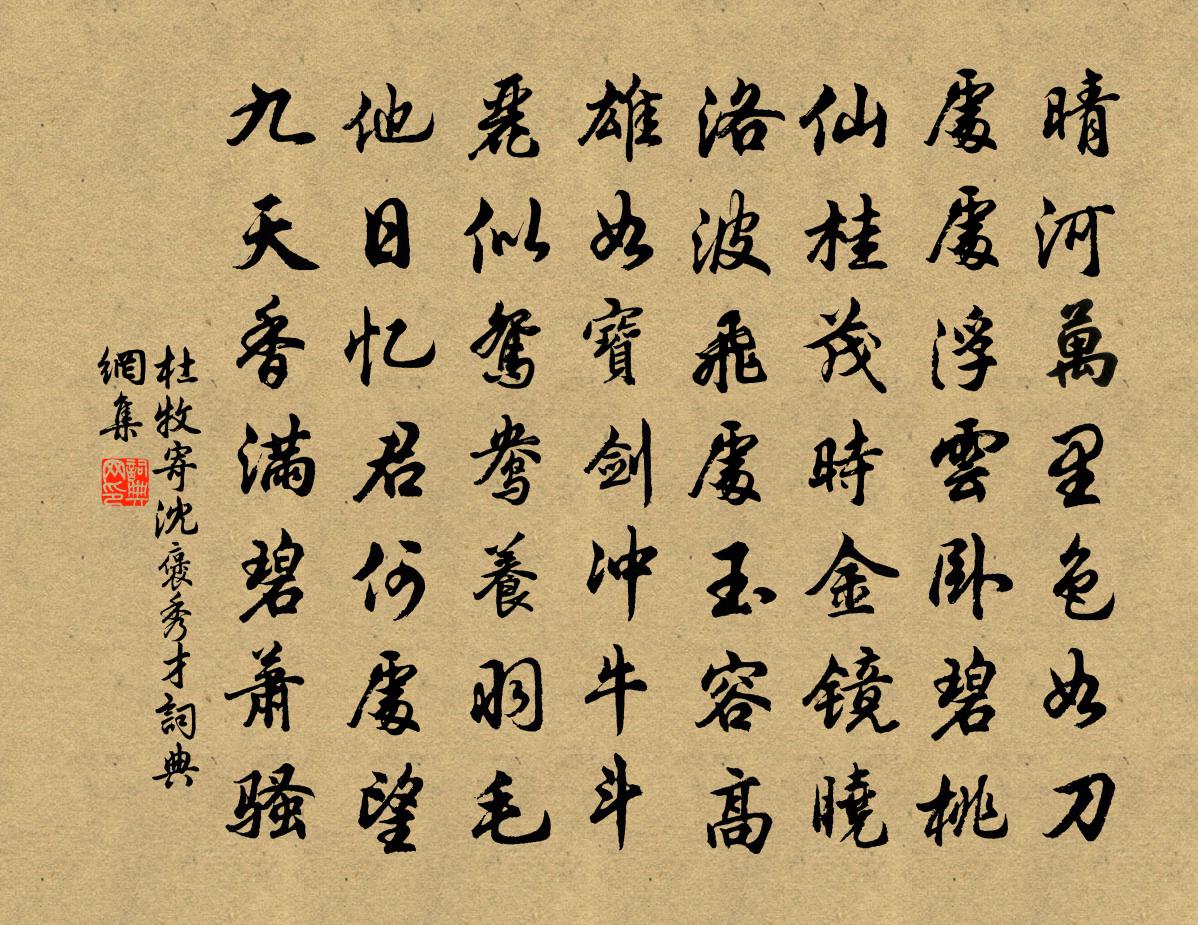 晴河萬里色如刀
處處浮雲卧碧桃
仙桂茂時金镜曉
洛波飛處玉容高
雄如寶劍冲牛斗
麗似鴛鴦養羽毛
他日忆君何處望
九天香满碧萧骚
杜牧寄沈褒秀才詞典
網集
詞典
网印